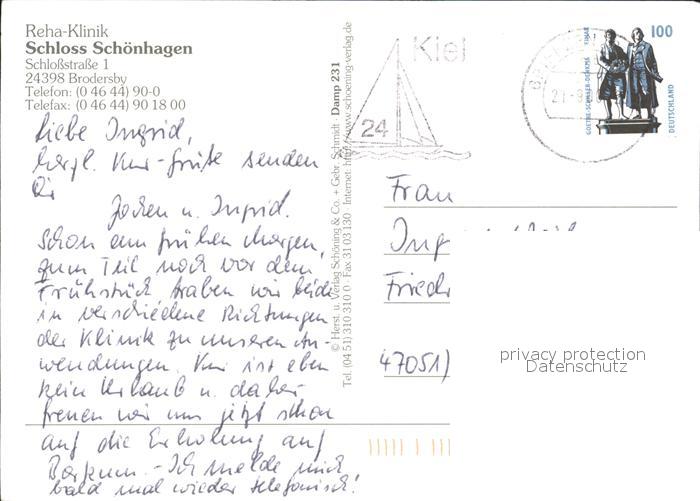 Reha-Klinik
Schloss Schönhagen
Schloßstraße 1
24398 Brodersby
Telefon: (0 46 44) 90-0
Telefax: (0 46 44) 90 18 00
Liebe Ingrid,
herzl. Kur-Grüße senden
Dir
Jochen u. Ingrid.
Schon am frühen Morgen,
zum Teil noch vor dem
Frühstück traben wir beide
in verschiedene Richtungen
der Klinik zu unseren An-
wendungen. Kur ist eben
kein Urlaub u. daher
freuen wir uns jetzt schon
auf die Erholung auf
Borkum. - Ich melde mich
bald mal wieder telefonisch!
© Herst. u. Verlag Schöning & Co. + Gebr. Schmidt · Damp 231
Tel. (04 51) 310 310 0 · Fax 31 03 130 · Internet: http://www.schoening-verlag.de
Kiel
24
100
GOETHE-SCHILLER-DENKMAL WEIMAR
DEUTSCHLAND
Frau
Ing
Friedr
47051
privacy protection
Datenschutz